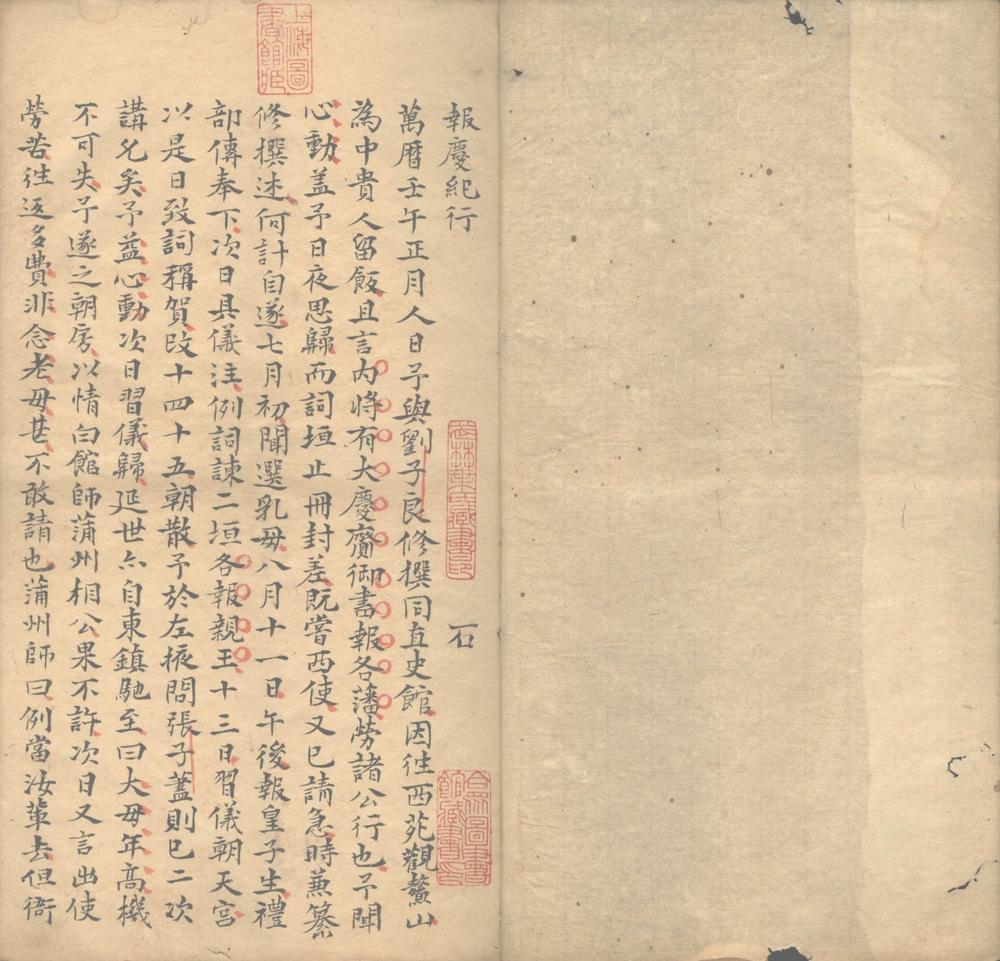 報慶紀行　石
萬曆壬午正月人日予與劉子良修撰同直史館因往西苑觀鰲山
為中貴人留飯且言內將有大慶齎御書報各藩勞諸公行也予聞
心動盖予日夜思歸而詞垣止冊封差既嘗西使又已請急時兼纂
修撰述何計自遂七月初聞選乳母八月十一日午後報皇子生禮
部傳奉下次日具儀注例詞諫二垣各報親王十三日習儀朝天宮
以是日致詞稱賀改十四十五朝散予於左掖問張子蓋則已二次
講允矣予益心動次日習儀歸延世亦自東鎮馳至曰大母年高機
不可失予遂之朝房以情白館師蒲州相公果不許次日又言出使
勞苦往返多費非念老母甚不敢請也蒲州師曰例當汝輩去但衙
上海圖書館
葉氏藏書印
合眾圖書館藏書印